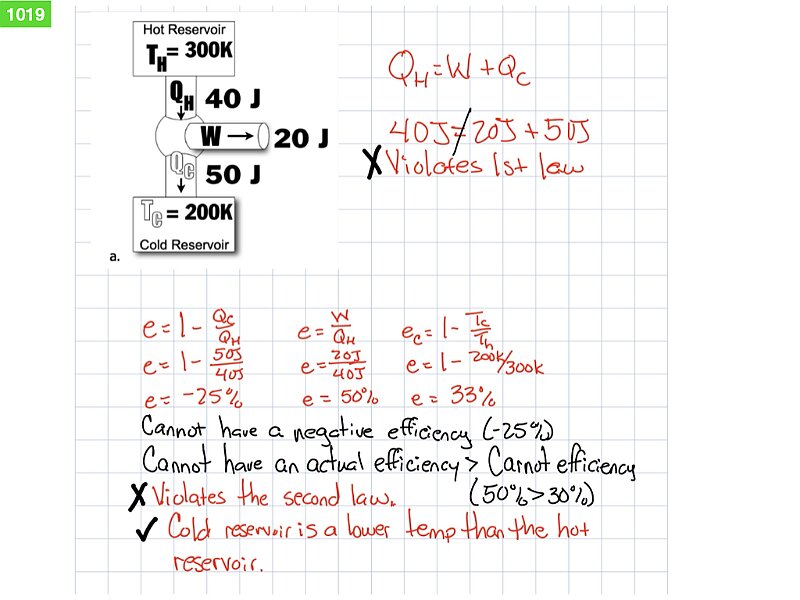 1019
Hot Reservoir
T_H = 300K
Q_H 40 J
W → 20 J
Q_C 50 J
T_C = 200K
Cold Reservoir
a.
Q_H = W + Q_C
40J ≠ 20J + 50J
X Violates 1st law
e = 1 - Q_C/Q_H e = W/Q_H e_c = 1 - T_c/T_h
e = 1 - 50J/40J e = 20J/40J e = 1 - 200K/300K
e = -25% e = 50% e = 33%
Cannot have a negative efficiency (-25%)
Cannot have an actual efficiency > Carnot efficiency
X Violates the second law. (50% > 30%)
✓ Cold reservoir is a lower temp than the hot
reservoir.